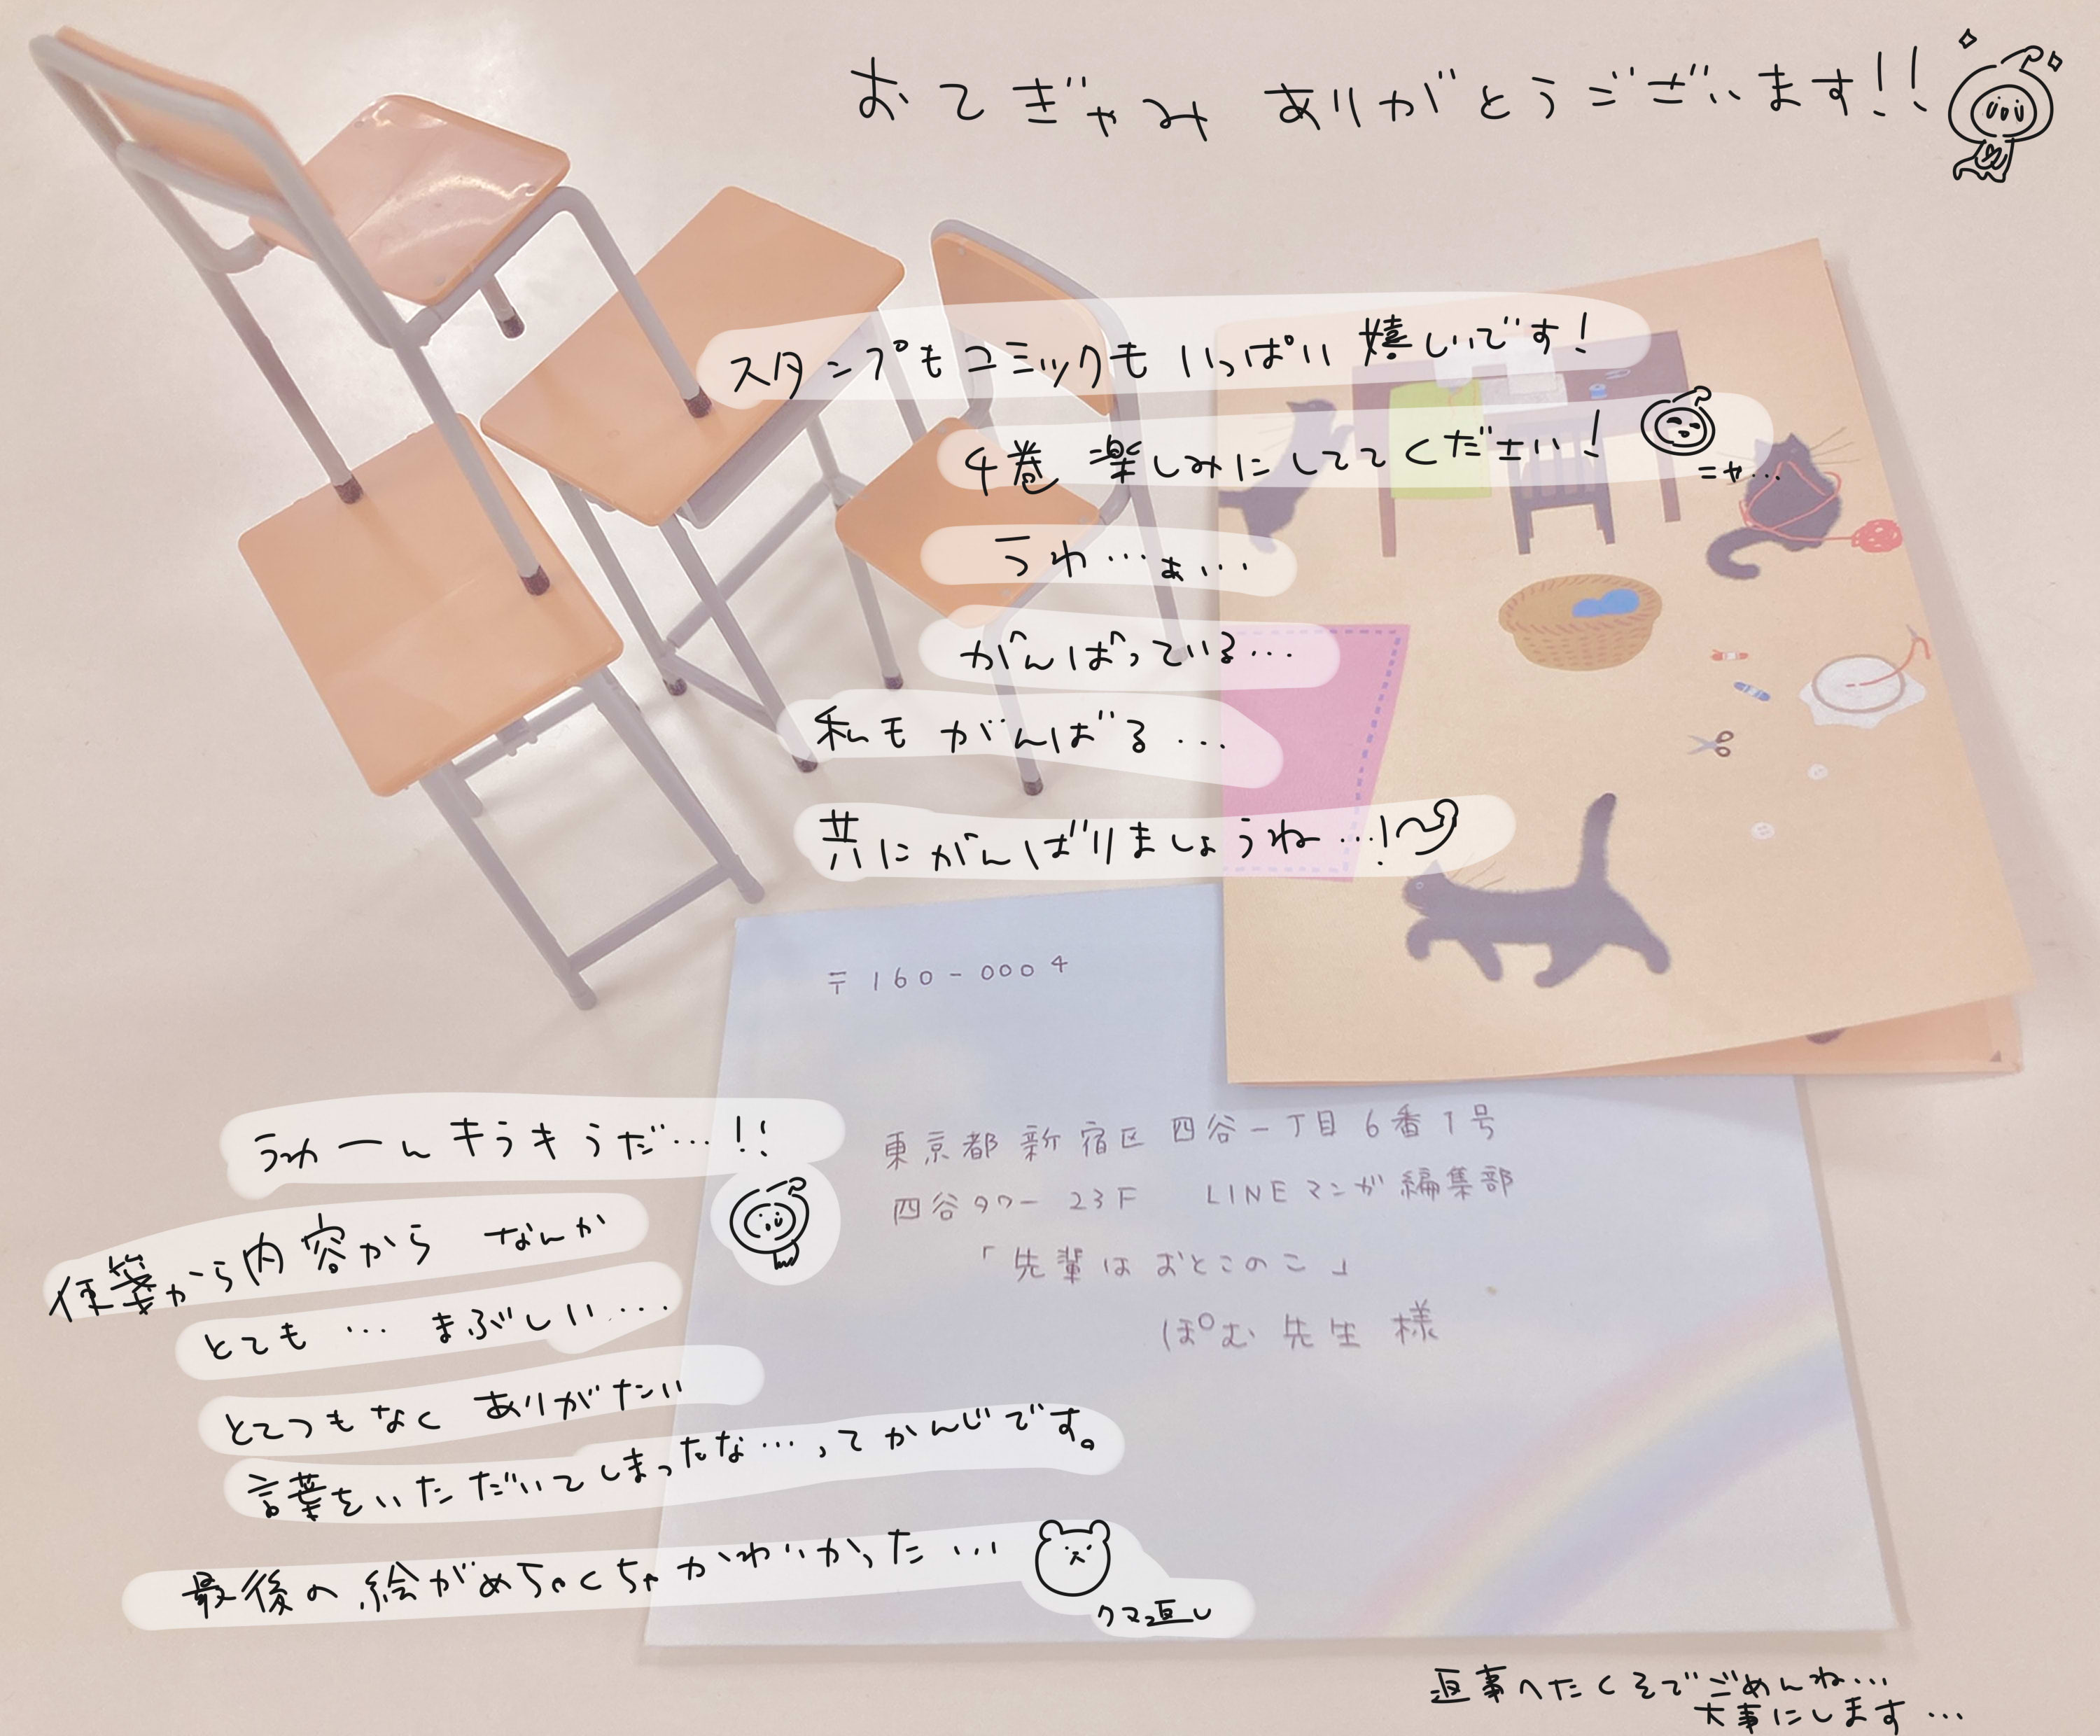 おてぎゃみ ありがとうございます!!
スタンプもコミックも いっぱい 嬉しいです!
4巻 楽しみにしててください!
ニャ…
うわ…ぁ…
がんばっている…
私も がんばる…
共にがんばりましょうね…!
〒160-0004
東京都新宿区四谷一丁目6番1号
四谷タワー 23F LINEマンガ編集部
「先輩はおとこのこ」
ぽむ先生 様
うわーんキラキラだ…!!
便箋から内容から なんか
とても … まぶしい…
とてつもなく ありがたい
言葉をいただいてしまったな…ってかんじです。
最後の絵がめちゃくちゃかわいかった…
クマ直し
返事へたくそでごめんね…
大事にします…